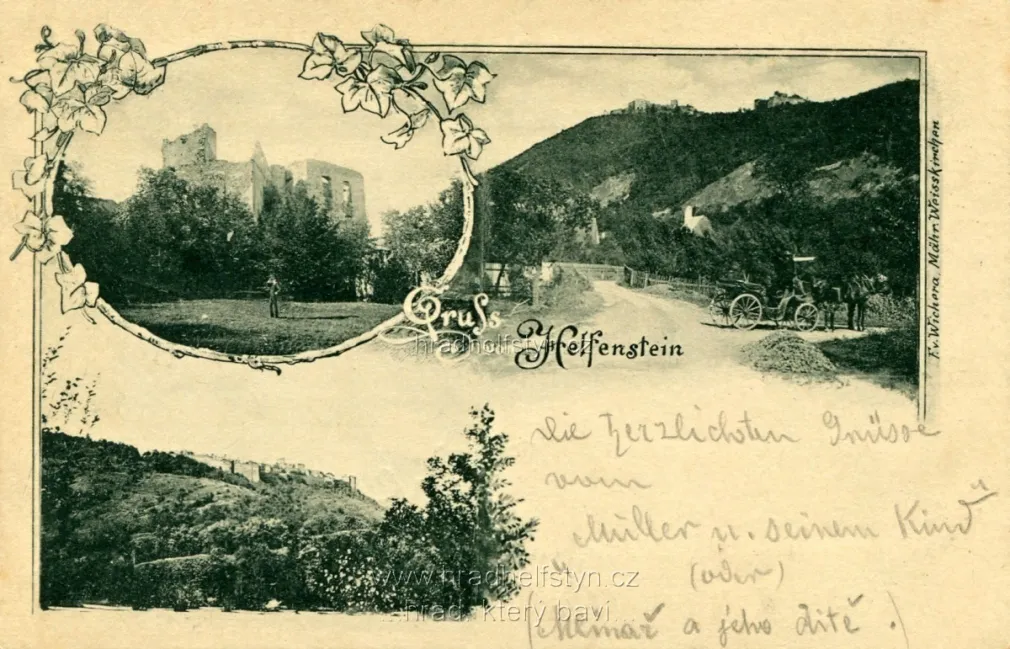 Gruss
vom Helfenstein
F. v. Wichera, Mähr. Weisskirchen
Die herzlichsten Grüsse
vom
„Müller u. seinem Kind“
(oder)
(Mlinař a jeho dítě.)
www.hradhelfstyn.cz
hrad, který baví
www.hradhelfstyn.cz
hrad, který baví